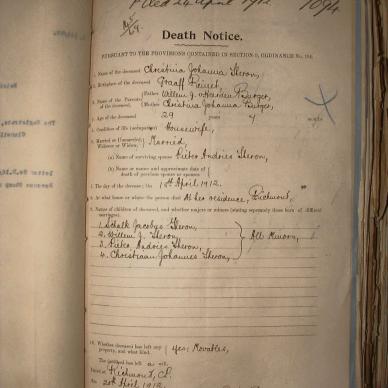 Filed 24 April 1912
Death Notice.
PURSUANT TO THE PROVISIONS CONTAINED IN SECTION 9, ORDINANCE No. 104.
1. Name of the deceased Christina Johanna Theron,
2. Birthplace of the deceased Graaff Reinet,
3. Names of the Parents of the deceased
Father Willem J. Burger,
Mother Christina Johanna Burger,
4. Age of the deceased 29 years 7 months
5. Condition of life (occupation) Housewife,
6. Married or Unmarried, Widower or Widow, Married,
(a) Name of surviving spouse Pieter Andries Theron,
(b) Name or names and approximate date of death of previous spouse or spouses
7. The day of the decease; On April 1912.
8. At what house or where the person died At her residence, Richmond,
9. Names of children of deceased, and whether majors or minors (stating separately those born of different marriages).
1. Schalk Jacobus Theron,
2. Willem J. Theron,
3. Pieter Andries Theron,
4. Christiaan Johannes Theron,
All Minors,
10. Whether deceased has left any property, and what kind. Yes; Movables,
The deceased has left a will.
Dated at Richmond, C.P.
April 1912